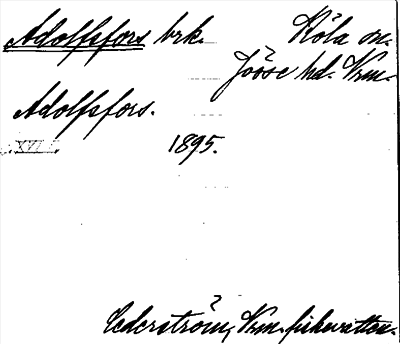 Adolfsfors brk. Köla sn.
Jösse hd. Vrm.
Adolfsfors.
XVI 1895.
Cederström, Vrm. fiskevatten.